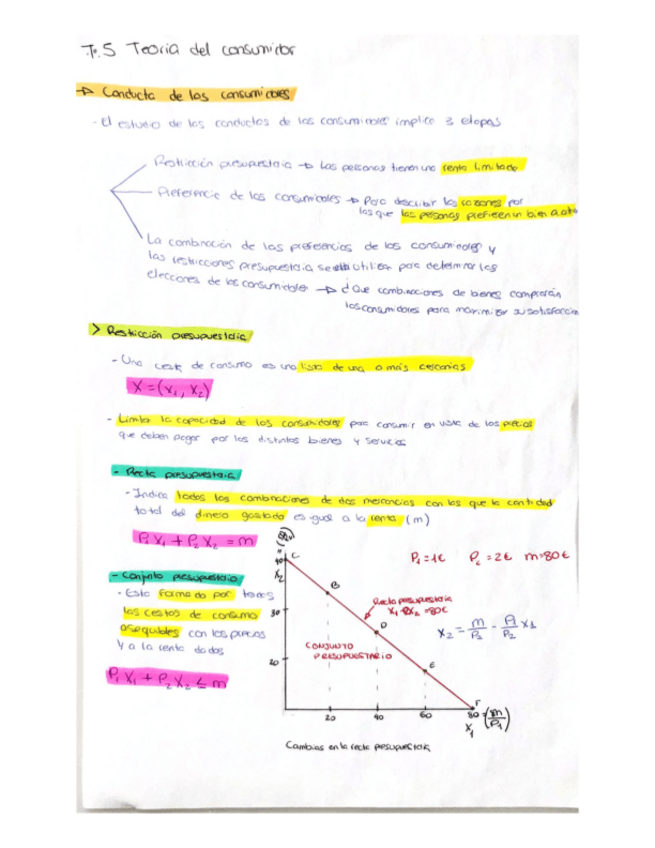 T.5 Teoria del consumidor
→ Conducta de los consumidores
- El estudio de las conductas de los consumidores implica 3 etapas
Restricción presupuestaria → Las personas tienen una renta limitada
Preferencia de los consumidores → Para describir las razones por
las que las personas prefieren un bien a otro
La combinación de las preferencias de los consumidores y
las restricciones presupuestaria se utilizan para determinar las
elecciones de los consumidores → ¿Que combinaciones de bienes comprarán
los consumidores para maximizar su satisfacción
> Restricción presupuestaria
- Una cesta de consumo es una lista de una o más
X = (x₁, x₂)
- Limita la capacidad de los consumidores para consumir en de los precios
que deben pagar por los distintos bienes y servicios
- Recta presupuestaria
- Indica todas las combinaciones de dos mercancias con las que la cantidad
total del dinero gastado es igual a la renta (m)
P₁X₁ + P₂X₂ = m
P₁=1€ P₂=2€ m=80€
- Conjunto presupuestario
- Esta formado por todas
las cestas de consumo
asequibles con los precios
y a la renta dados
P₁X₁ + P₂X₂ ≤ m
40
C
X₂
B
Recta presupuestaria
=80€
30
D
X₂ = m/P₂ - P₁/P₂ X₁
CONJUNTO
PRESUPUESTARIO
20
E
F
20 40 60 80 = (m/P₁)
X₁
Cambios en la recta presupuestaria